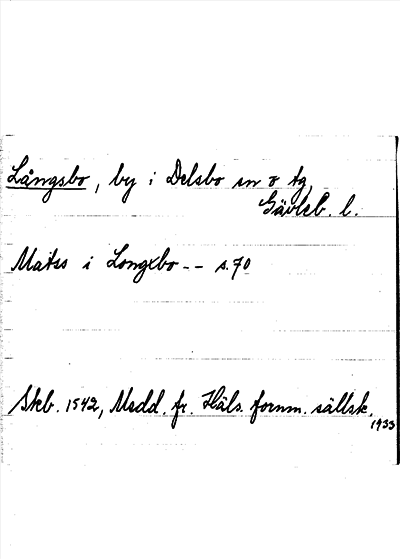 Långsbo, by i Delsbo sn o tg
Gävleb. l.
Matss i Longxbo -- s. 70
Skb. 1542, Medd. fr. Häls. fornm. sällsk.
1933